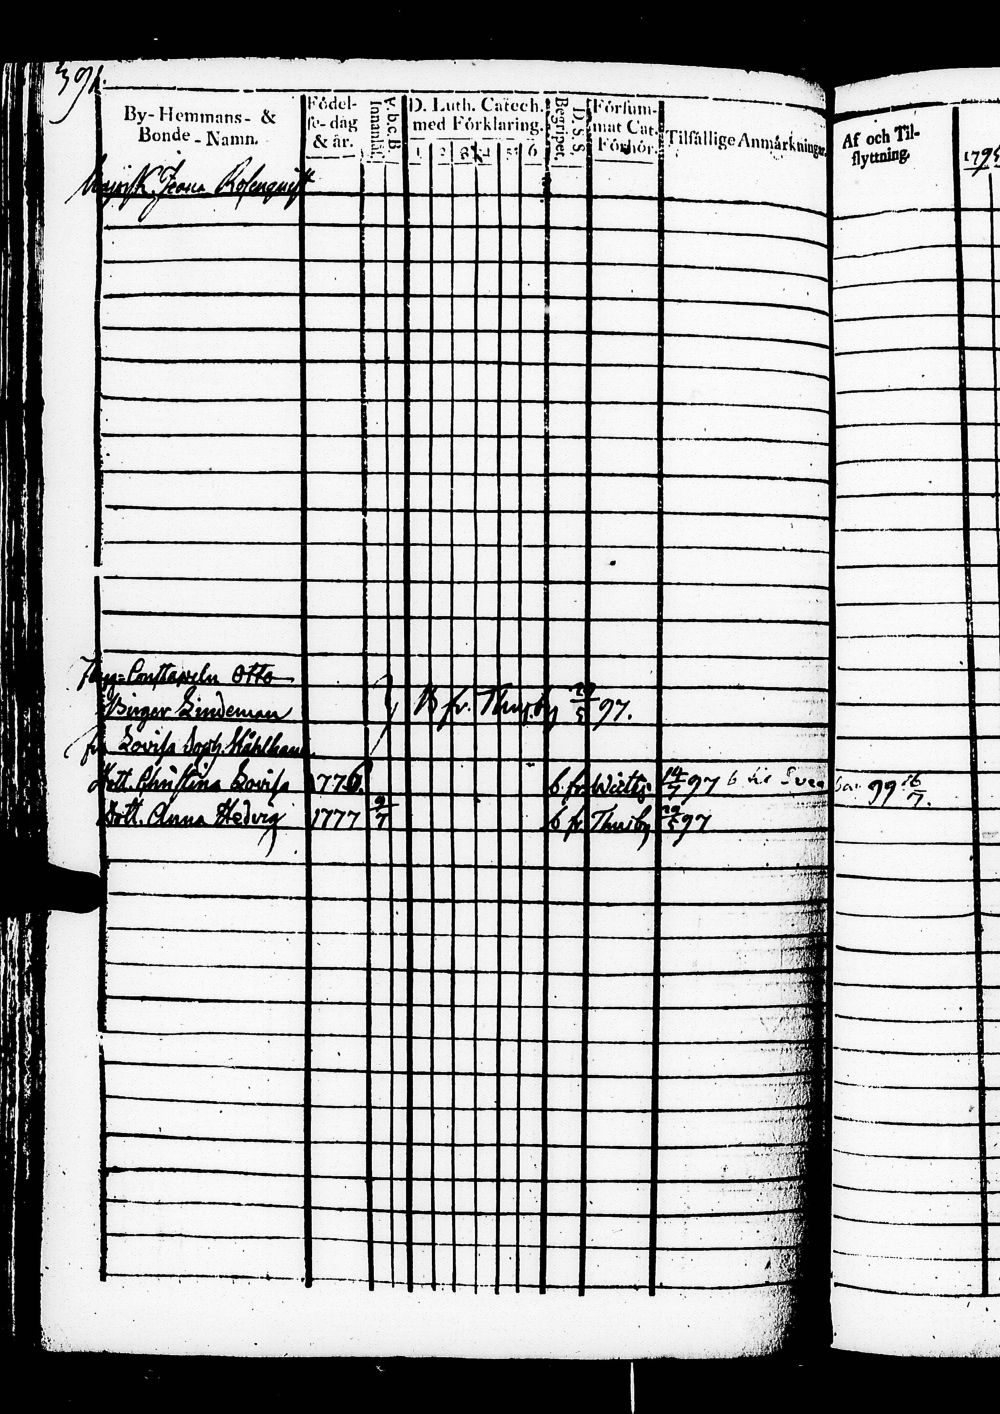 391.
By-Hemmans- &
Bonde-Namn.
Födel-
se-dag
& år.
Innantil.
A.b.c.B
D. Luth. Catech.
med Förklaring.
1 2 3 4 5 6
Begripet.
D. S. S.
Försum-
mat Cat.
Förhör.
Tilfällige Anmärkningar.
Af och Til-
flyttning.
1795
Rosenqvist
Constapeln Otto
Birger Lindeman B fr. Thusby 29/5 97.
fru Lovisa Soph. Ståhlhane
Dott. Christina Lovisa 1776. b. fr. 14/7 97 b til Svea 99 16/7.
Dott. Anna Hedvig 1777 9/7 b fr Thusby 29/5 97